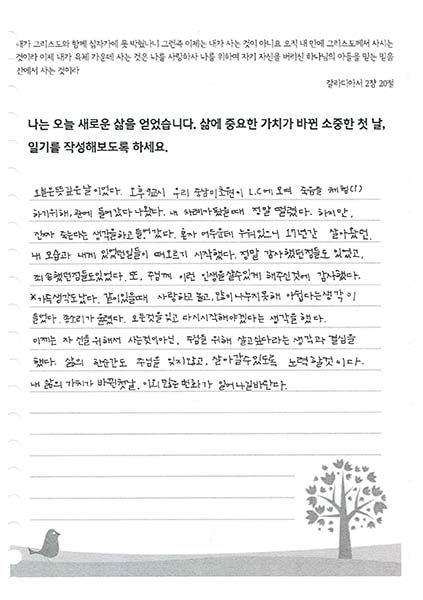 내가 그리스도와 함께 십자가에 못 박혔나니 그런즉 이제는 내가 사는 것이 아니요 오직 내 안에 그리스도께서 사시는
것이라 이제 내가 육체 가운데 사는 것은 나를 사랑하사 나를 위하여 자기 자신을 버리신 하나님의 아들을 믿는 믿음
안에서 사는 것이라
갈라디아서 2장 20절
나는 오늘 새로운 삶을 얻었습니다. 삶에 중요한 가치가 바뀐 소중한 첫 날,
일기를 작성해보도록 하세요.
오늘은 뜻깊은 날이었다. 오후 9시 우리 충남미조원이 L.C에 모여 죽음을 체험(!)
하기위해, 관에 들어갔다 나왔다. 내 차례가 됐을때 정말 떨렸다. 하지만,
진짜 죽는다는 생각을하고 들어갔다. 혼자 어두운데 누워있으니 17년간 살아왔던
내 모습과 내게 있었던일들이 떠오르기 시작했다. 정말 감사했던점들도 있었고,
죄송했던점들도있었다. 또, 주님께 이런 인생을살수있게 해주신것에 감사했다.
가족생각도났다. 같이있을때 사랑하고 놀고, 많이 나누지못해 아쉽다는생각이
들었다. 종소리가 울렸다. 모든것을잊고 다시시작해야겠다는 생각을 했다.
이제는 자신을위해서 사는것이아닌, 주님을 위해 살고싶다라는 생각과 결심을
했다. 삶의 한순간도 주님을 잊지않고, 살아갈수있도록 노력할것이다.
내 삶의 가치가 바뀐첫날, 이외 많은 변화가 일어나길바란다.